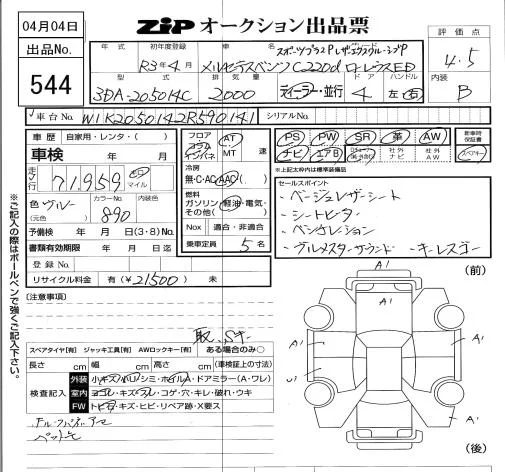 04月04日
ZIP オークション出品票
出品No.
544
評価点
4.5
内装
B
年式 初年度登録 車名 スポーツプラスP レザーエクスクルーシブP
R3年4月 メルセデスベンツC220d ローレウスED
型式 排気量 ドア ハンドル
3DA-205014C 2000 ディーラー・並行 4 左・右
車台No. W1K2050142R590141 シリアルNo.
車歴 自家用・レンタ・( )
車検 年 月
走行 71,959 km マイル
色 ブルー カラーNo. 内装色
(元色) 890
予備検 年 月 日(3・8)No.
書類有効期限 年 月 日迄
登録No.
リサイクル料金 有(¥21500) 未
フロア コラム インパネ AT MT 速
冷房 無・C・AC・AAC( )
燃料 ガソリン・軽油・電気・その他( )
Nox 適合・非適合
乗車定員 5名
PS PW SR 革 AW 新車時保証書
ナビ エアB 社外ナビ 社外AW
※上記太枠内は標準装備品
セールスポイント
・ベージュレザーシート
・シートヒーター
・ベンチレーション
・ブルメスターサウンド ・キーレスゴー
※ご記入の際はボールペンで強くご記入下さい。
(注意事項)
スペアタイヤ[有] ジャッキ工具[有] AWロックキー[有] ある場合のみ○
長さ cm 幅 cm 高さ cm (車検証上の寸法)
検査記入
外装 小キズ・小凹・シミ・ホイルA・ドアミラー(A・ワレ)
室内 ヨゴレ・キズ・スレ・コゲ・穴・キレ・破れ・ウキ
FW トビ石・キズ・ヒビ・リペア跡・X要ス
(前)
A1
A1
A1
A1
U1
A1
A1
(後)